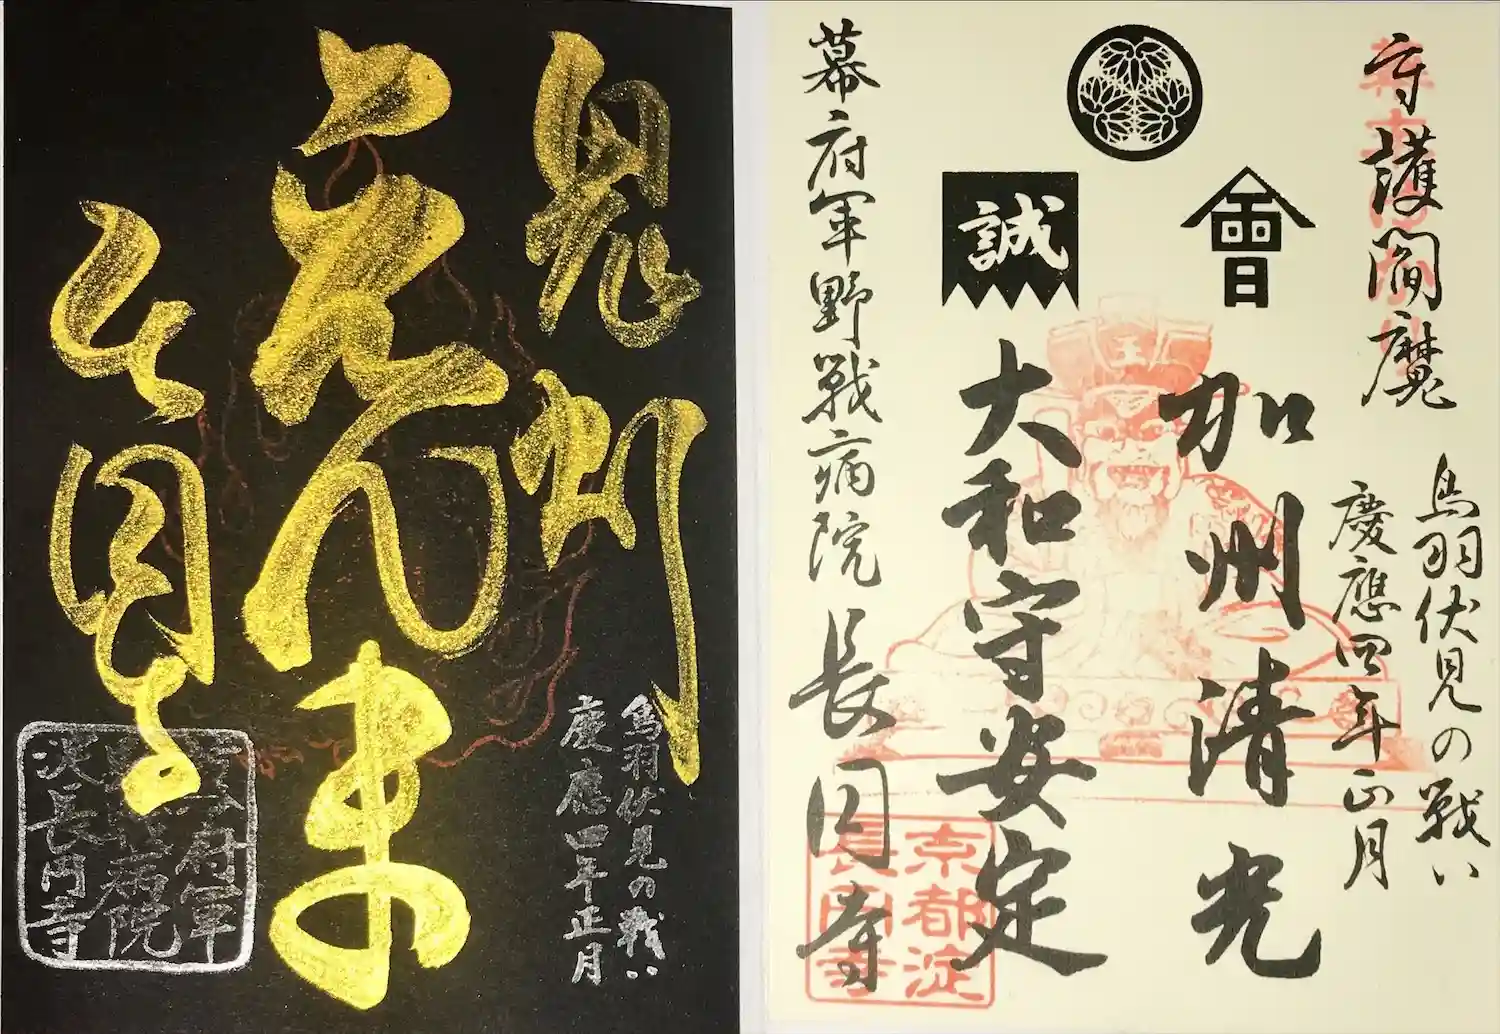 鳥羽伏見の戦い
慶應四年正月
長円寺
淀長円寺
守護閻魔
鳥羽伏見の戦い
慶應四年正月
會
加州清光
誠
大和守安定
幕府軍野戦病院 長円寺
京都淀
長円寺
王